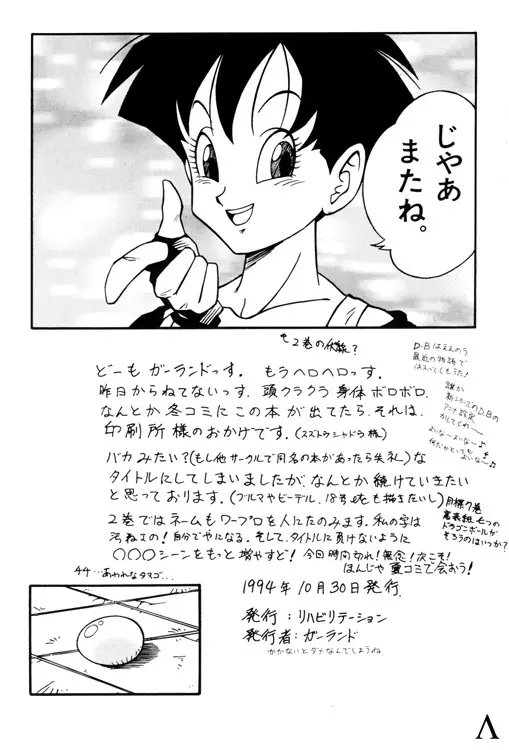 じゃあ
またね。
どーも ガーランドっす。もうヘロヘロっす。
昨日からねてないっす。頭クラクラ 身体ボロボロ。
なんとか冬コミにこの本が出てたら、それは、
印刷所様のおかげです。(スズトウシャドウ様)
バカみたい?(もし他サークルで同名の本があったら失礼)な
タイトルにしてしまいましたが、なんとか続けていきたい
と思っております。(ブルマやビーデル、18号も描きたいし)
2巻ではネームもワープロを人にたのみます。私の字は
自分でやになる。そして、タイトルに負けないように
○○○シーンをもっと増やすど!今日時間切れ!無念!次こそ!
ほんじゃ 夏コミで会おう!
D・Bはええのう
最近の物語で
誰か
新シリーズのD.Bの
アニメ設定
目標7巻
裏表紙七つの
ドラゴンボールが
そろうのはいつか?
44…あわれなタマゴ…
1994年10月30日発行.
発行:リハビリテーション
発行者:ガーランド
かかないとダメなんでしょうね